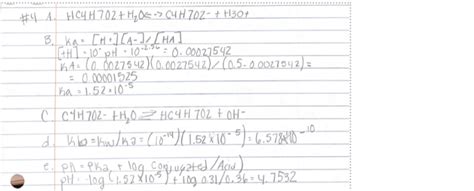 #4 A. HC4H7O2 + H2O <-> C4H7O2- + H3O+
B. Ka = [H+][A-]/[HA]
[+H] = 10^-pH = 10^-2.56 = 0.0027542
KA = (0.0027542)(0.0027542)/(0.5-0.0027542) =
= 0.00001525
Ka = 1.52×10^-5
C. C4H7O2- + H2O ⇌ HC4H7O2 + OH-
d. Kb = Kw/Ka = (10^-14)(1.52×10^-5) = 6.578×10^-10
e. pH = PKa + log (conjugated/Acid)
pH = -log(1.52×10^-5) + log 0.31/0.36 = 4.7532